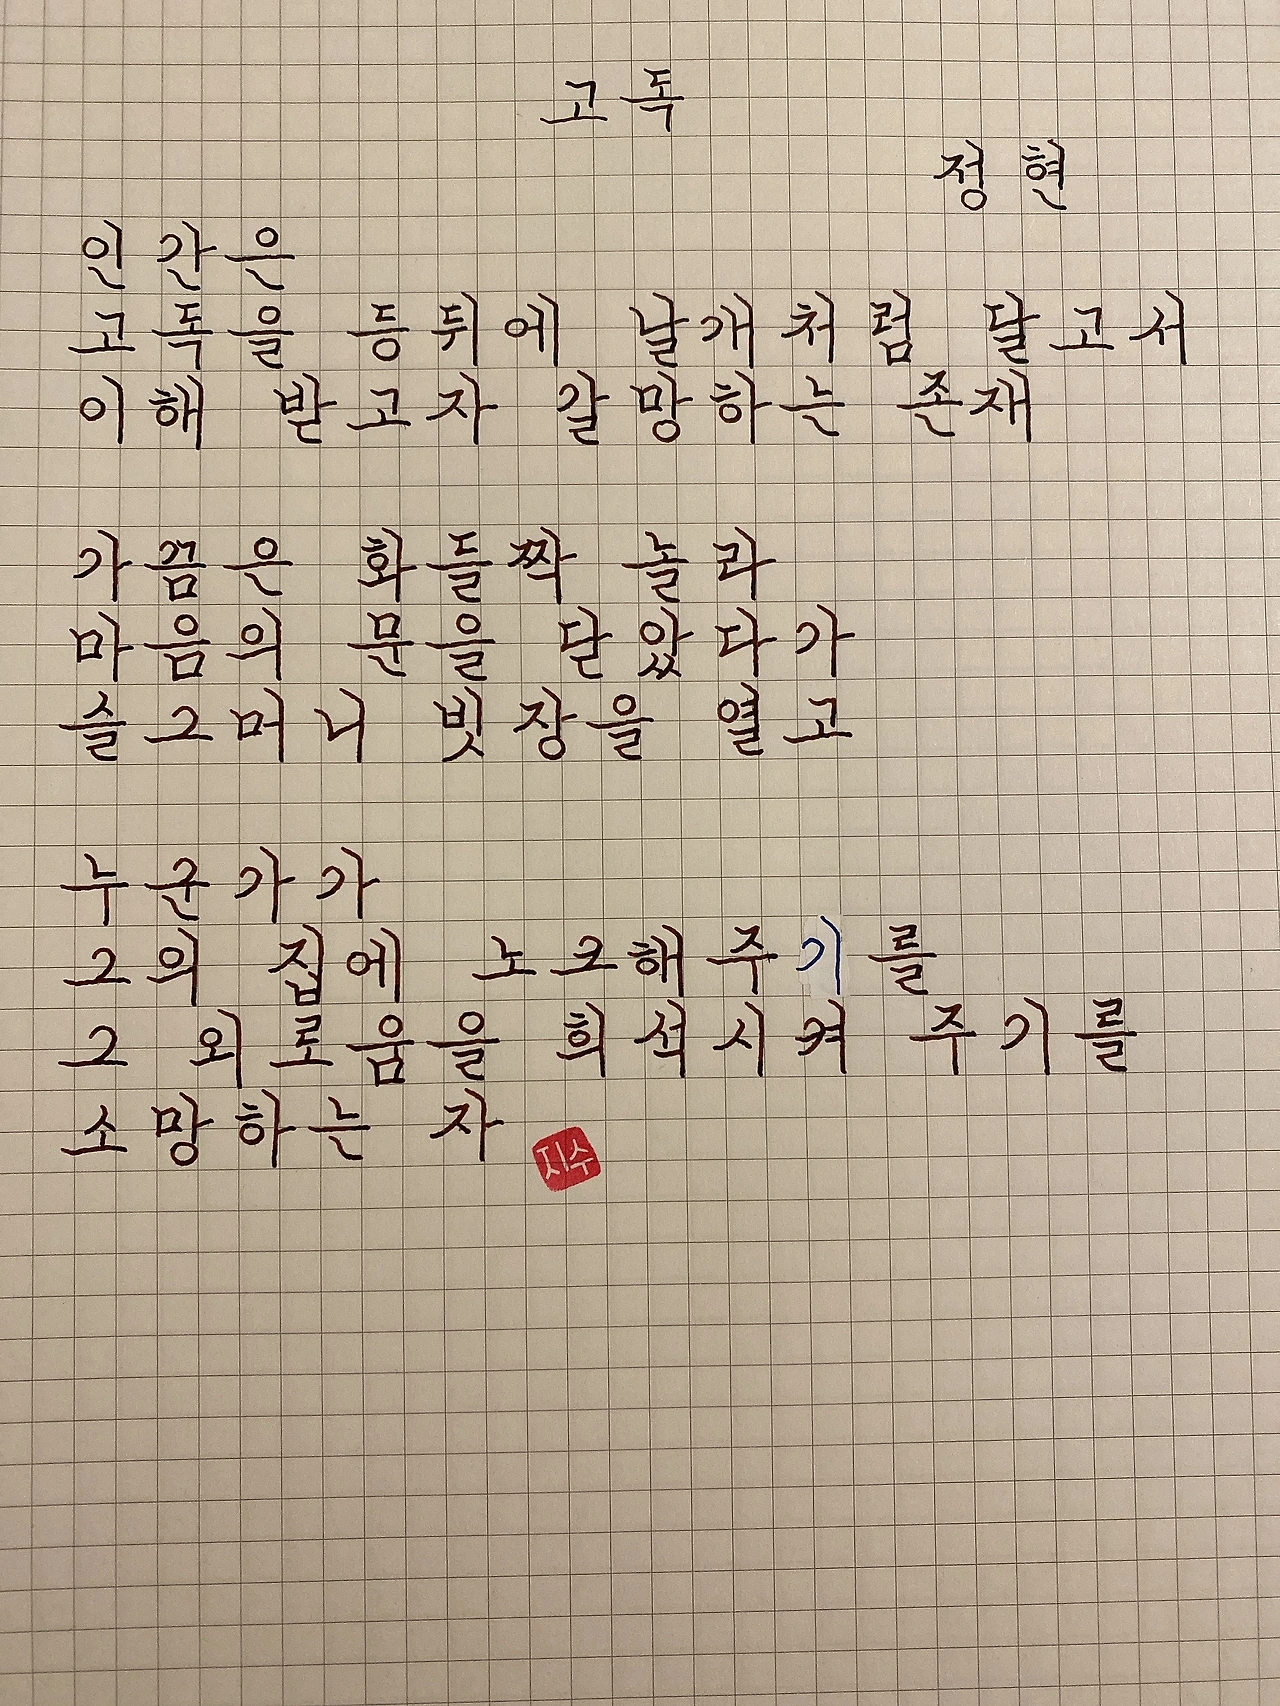 고독
정현
인간은
고독을 등뒤에 날개처럼 달고서
이해 받고자 갈망하는 존재
가끔은 화들짝 놀라
마음의 문을 닫았다가
슬그머니 빗장을 열고
누군가가
그의 집에 노크해주기를
그 외로움을 희석시켜 주기를
소망하는 자
지수